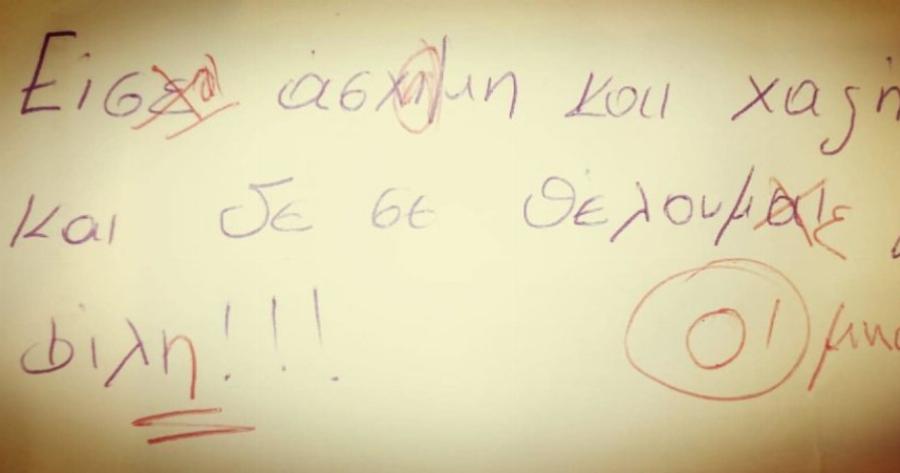 Είσαι άσχημη και χαζή
και δε σε θέλουμε
φίλη!!! Οι